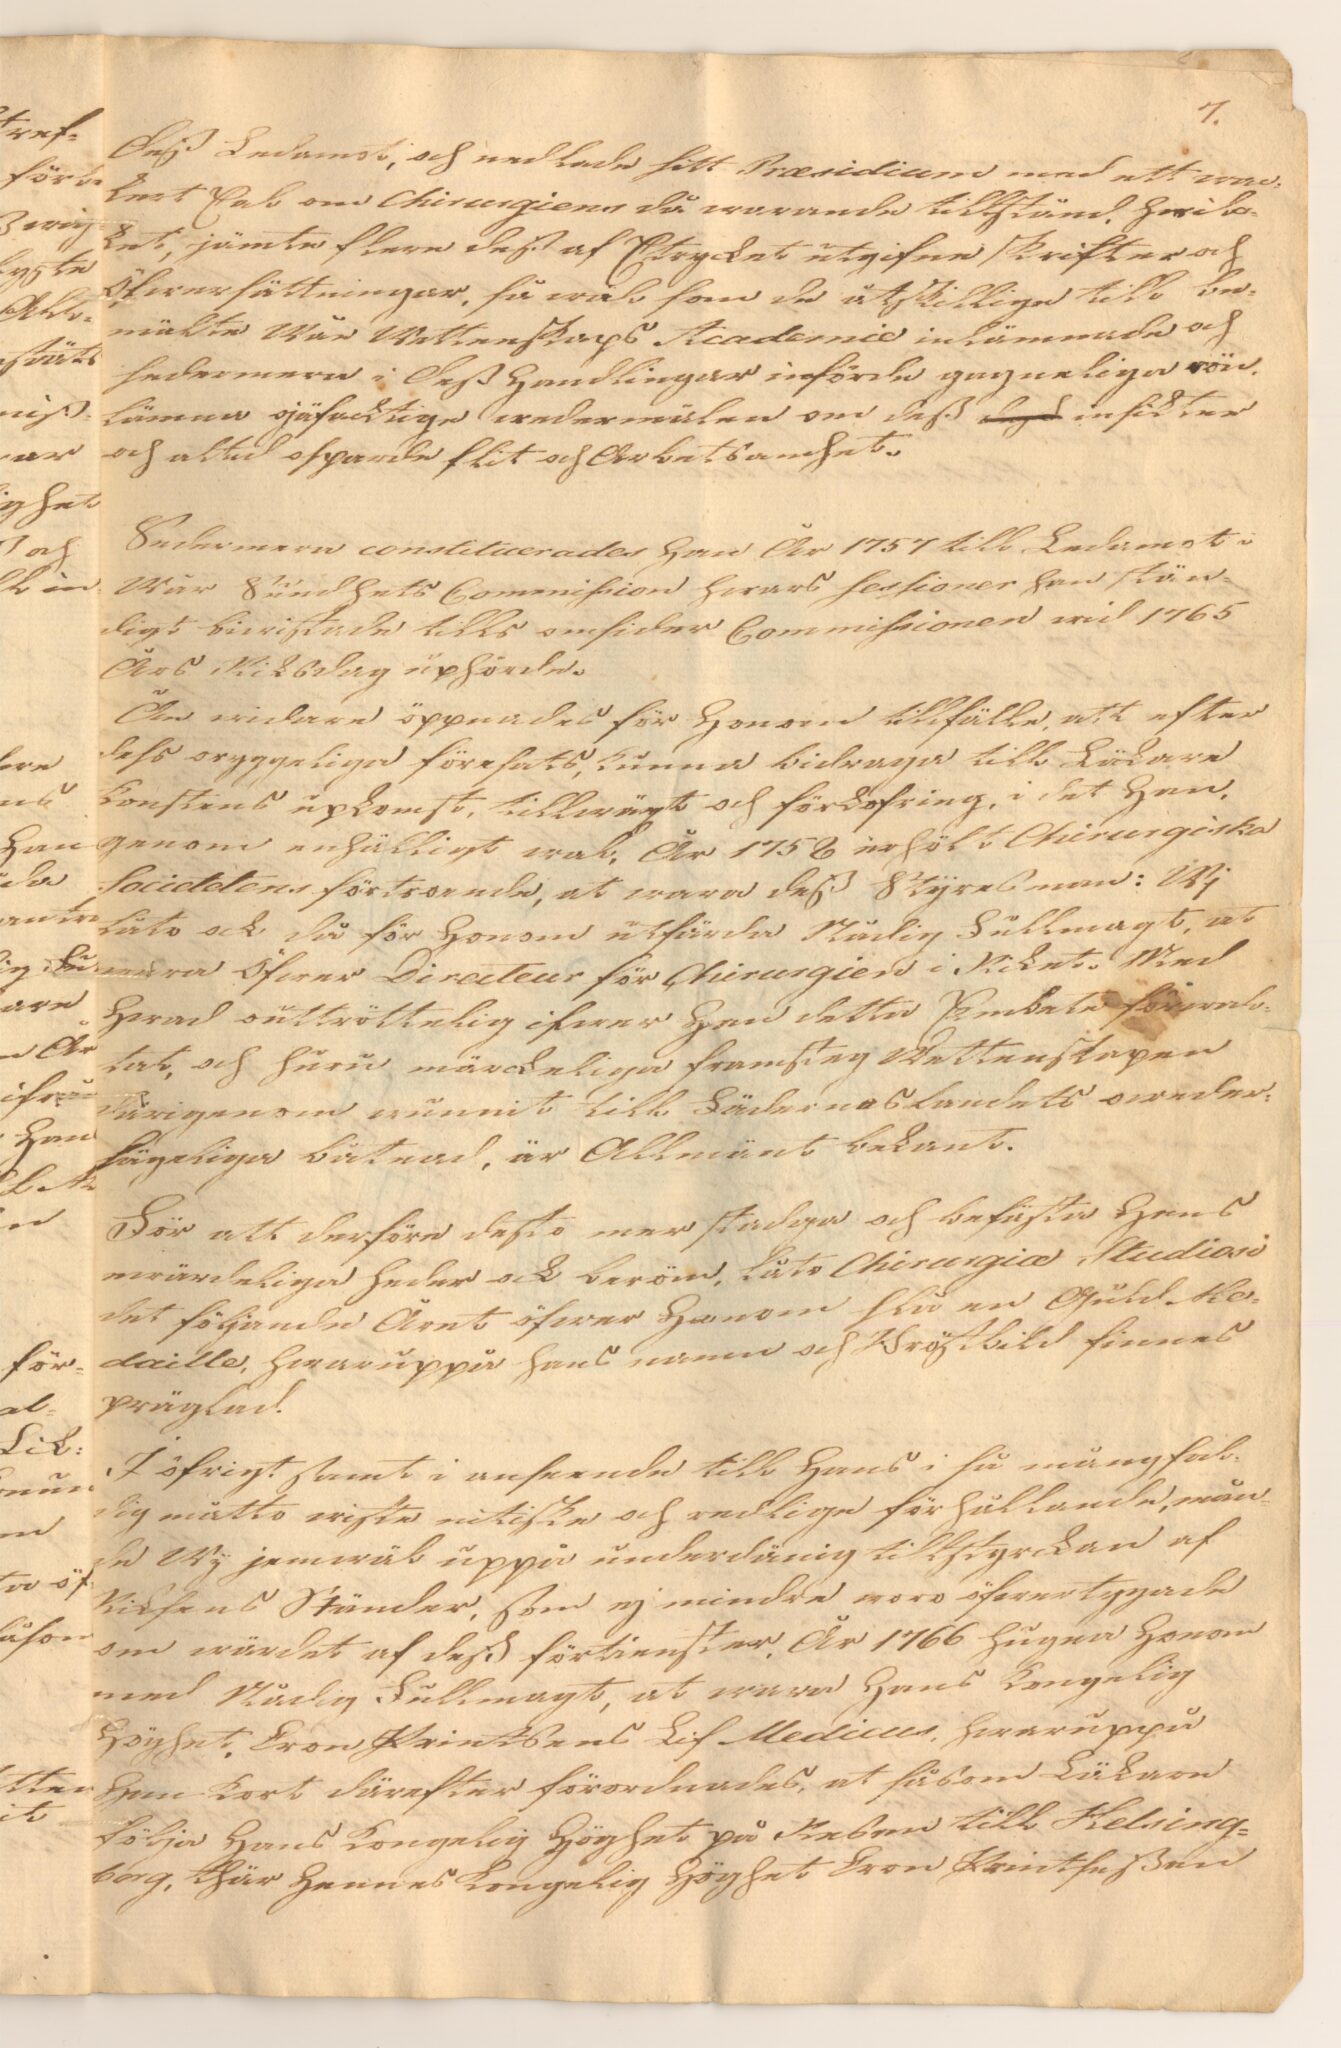 7.
Dess Ledamot, och nedlade sitt Præsidium med ett wac-
kert Tal om Chirurgiens då warande tillstånd, hwil-
ket, jämte flere dess af Trycket utgifne skrifter och
Öfwersättningar, så wäl som de åtskillige till be-
mälte Wår Wettenskaps Academie inlämnade och
sedermera i Dess Handlingar införde gagneliga rön,
lämna ojäfacktige wedermälen om dess insickter
och altid osparde flit och Arbetsamhet.
Sedermera constituerades Han År 1757 till Ledamot i
Wår Sundhets Commission hwars sessioner han stän-
digt biwistade tills omsider Commissionen wid 1765
Års Riksdag uphörde.
Än widare öppnades för Honom tillfälle, att efter
dess oryggeliga föresats, kunna bidraga till Läkare
Konstens upkomst, tillwäxt och förkofring, i det Han,
genom enhälligt wal, År 1758 erhölt Chirurgiska
Societetens förtroende, at wara dess Styresman: Wj
läto ock då för Honom utfärda Nådig Fullmagt, at
wara Öfwer Directeur för Chirurgien i Riket. Med
hwad outtröttelig ifwer Han detta Embete förwal-
tat, och huru märckeliga framsteg Wettenskapen
därigenom wunnit till Fäderneslandets oweder-
säyeliga båtnad, är Allmänt bekant.
För att derföre desto mer stadga och befästa Hans
wärdeliga heder ock beröm, läto Chirurgiæ Studiosi
det följande Året öfwer Honom slå en Guld Me-
daille, hwaruppå hans namn och Bröstbild finnes
präglad.
I öfrigt samt i anseende till Hans i så mångfal-
dig måtto wiste nitiske och redlige förhållande, mån-
de Wj jemwäl uppå underdånig tillstyrckan af
Riksens Ständer, som ej mindre woro öfwertygade
om wärdet af dess förtienster, År 1766 hugna Honom
med Nådig Fullmagt, at wara Hans Kongelig
Höghet, Cron Printsens Lif Medicus, hwaruppå
Han kort därefter förordnades, at såsom Läkare
följa Hans Kongelig Höghet på Resan till Helsing-
borg, thär Hennes Kongelig Höghet Cron Printsessan